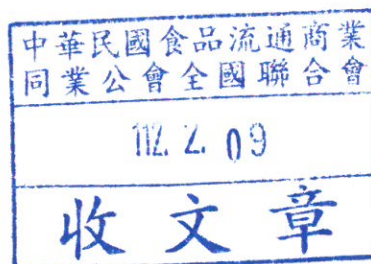 中華民國食品流通商業
同業公會全國聯合會
112. 2. 09
收文章